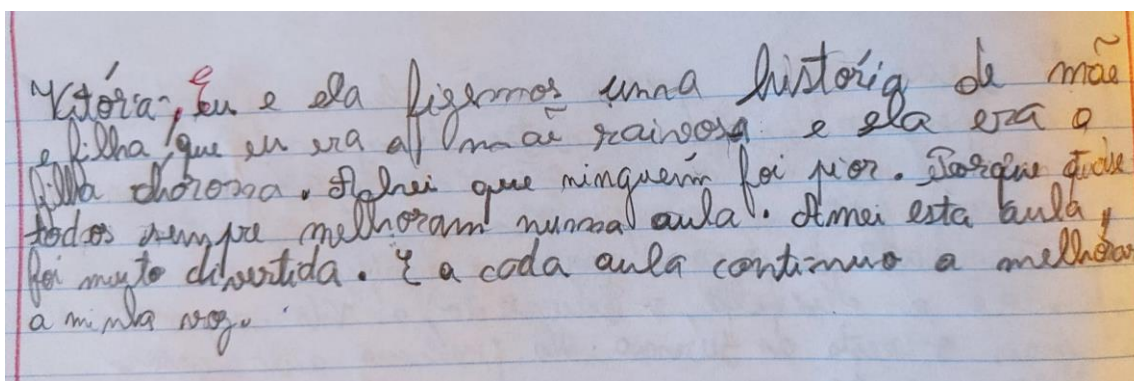 Vitória, Eu e ela fizemos uma história de mãe
e filha, que eu era a mãe raivosa e ela era a
filha chorona. Achei que ninguém foi pior. Porque quase
todos sempre melhoram numa aula. Amei esta aula,
foi muyto divertida. E a cada aula continuo a melhorar
a minha voz.